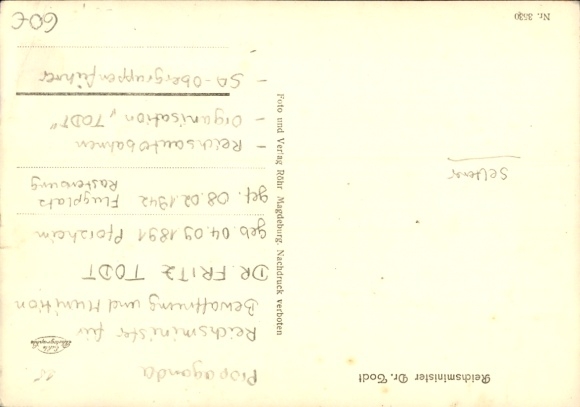 Reichsminister Dr. Todt
Propaganda
Reichsminister für
Bewaffnung und Munition
DR. FRITZ TODT
geb. 04.09.1891 Pforzheim
gef. 08.02.1942 Flugplatz
Rastenburg
- Reichsautobahnen
- Organisation „TODT“
- SA-Obergruppenführer
Foto und Verlag Röhr Magdeburg, Nachdruck verboten
Seltener
Nr. 3530
60€